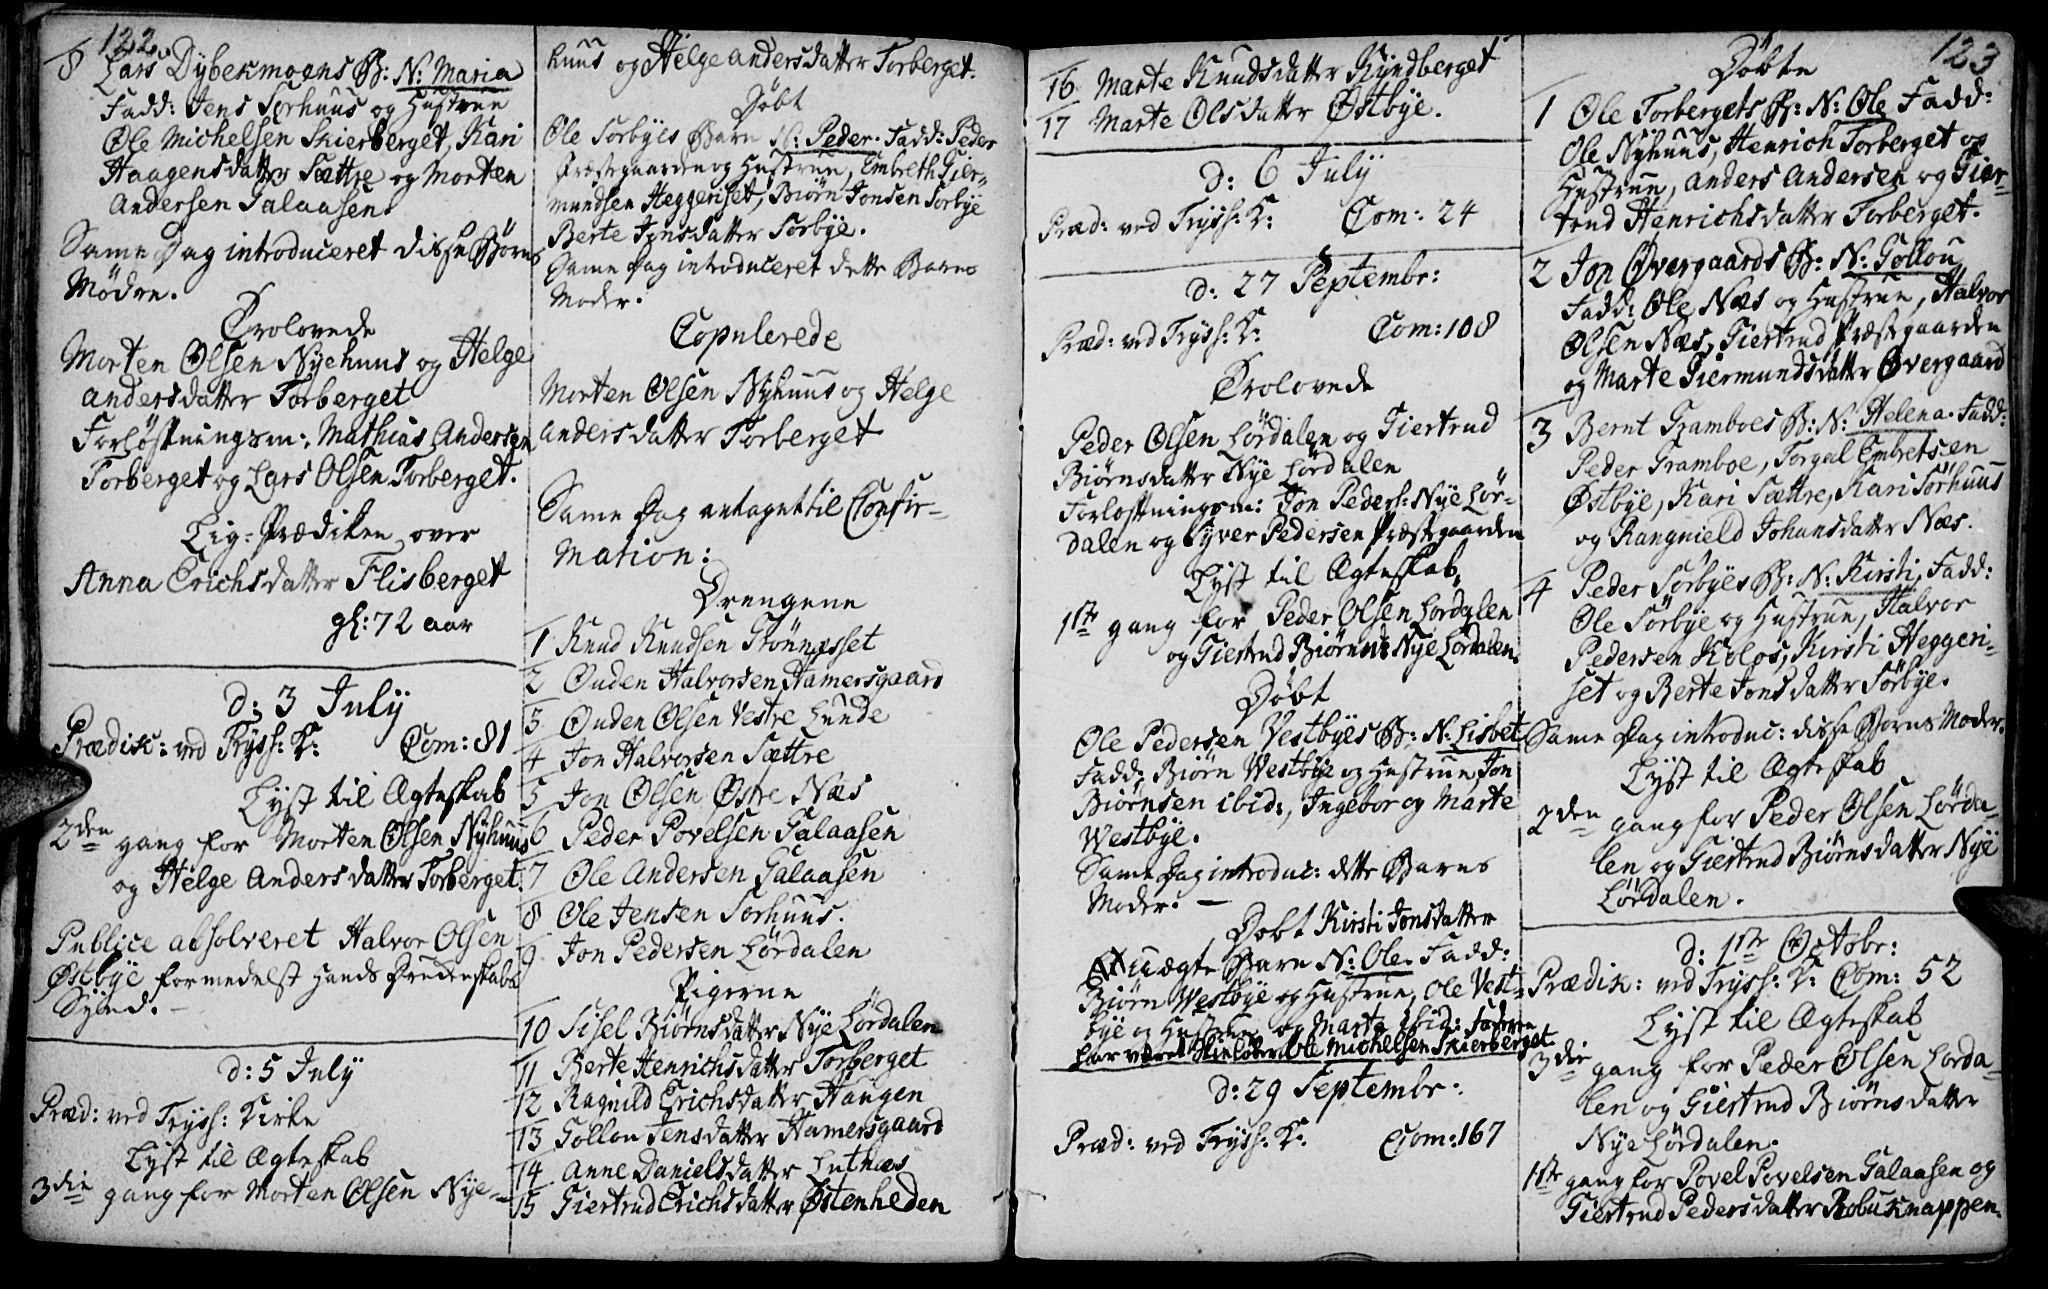 122.
8 Lars Dybekmoens B: N: Maria
Fadd: Jens Sørhuus og Hustrue
Ole Michelsen Skierberget, Kari
Haagensdatter Sættre og Morten
Andersen Galaasen.
Same Dag introduceret disse Børns
Mødre.
Trolovede
Morten Olsen Nyehuus og Helge
Andersdatter Torberget
Forløftningsm: Mathias Andersen
Torberget og Lars Olsen Torberget.
Lig-Prædiken over
Anna Erichsdatter Flisberget
gl: 72 aar
d: 3 July
Prædik: ved Tryss: K: Com: 81
Lyst til Ægteskab
2den gang for Morten Olsen Nyhuus
og Helge Andersdatter Torberget.
Publice absolveret Halvor Olsen
Østbye formedelst hands
Synd. –
d: 5 July
Præd: ved Tryss: Kirke
Lyst til Ægteskab
3die gang for Morten Olsen Nye-
huus og Helge Andersdatter Torberget.
Døbt
Ole Sorbyes Barn N: Peder. Fadd: Peder
Præstegaarden og Hustrue, Embreth Gier-
mundsen Heggeriset, Biørn Jonsen Sorbye
Berte Jonsdatter Sorbye.
Same Dag introduceret dette Barns
Moder.
Copulerede
Morten Olsen Nyhuus og Helge
Andersdatter Torberget
Same Dag antaget til Confir-
mation:
Drengene
1 Knud Knudsen Grønnesset
2 Ouden Halvorsen Hamersgaard
3 Ouden Olsen Vestre Lunde
4 Jon Halvorsen Sættre
5 Jon Olsen Østre Næs
6 Peder Povelsen Galaasen
7 Ole Andersen Galaasen
8 Ole Jensen Sorhuus.
9 Jon Pedersen Lørdalen
Pigerne
10 Sisel Biørnsdatter Nye Lørdalen
11 Berte Henrichsdatter Torberget
12 Ragnild Erichsdatter Haugen
13 Gollou Jensdatter Hamersgaard
14 Anne Danielsdatter Lutnæs
15 Giertrud Erichsdatter Østenheden
16 Marte Knudsdatter Ryndberget
17 Marte Olsdatter Østbye.
d: 6 July
Præd: ved Tryss: K: Com: 24
d: 27 Septembr:
Præd: ved Tryss: K: Com: 108
Trolovede
Peder Olsen Lördalen og Giertrud
Biørnsdatter Nye Lördalen
Forløftningsm: Jon Peders: Nye Lör-
dalen og Syver Pedersen Præstegaarden
Lyst til Ægteskab
1ste gang for Peder Olsen Lordalen
og Giertrud Biørnsd Nye Lördalen.
Döbt
Ole Pedersen Vestbyes B: N: Lisbet
Fadd: Biørn Westbye og Hustrue, Jon
Biørnsen ibid:, Ingebor og Marte
Westbye.
Same Dag introduc: dette Barns
Moder. –
Dobt Kirsti Jonsdatter
uægte Barn N: Ole. Fadd:
Biørn Westbye og Hustrue, Ole Vest-
bye og Hustrue og Marte ibid: Faderen
har været Ole Michelsen Skierberget
d: 29 Septembr:
Præd: ved Tryss: K: Com: 167
123
Döbte
1 Ole Torbergets B: N: Ole Fadd:
Ole Nyhuus, Henrich Torberget og
Hustrue, Anders Andersen og Gier-
trud Henrichsdatter Torberget.
2 Jon Øvergaards B: N: Gollou
Fadd: Ole Næs og Hustrue, Halvor
Olsen Næs, Giertrud Præstgaarden
og Marte Giermundsdatter Øvergaard
3 Bernt Gramboes B: N: Helena. Fadd:
Peder Gramboe, Torgal Embretsen
Østbye, Kari Sættre, Kari Sörhuus
og Rangnield Johansdatter Næs.
4 Peder Sørbyes B: N: Kirsti, Fadd:
Ole Sörbye og Hustrue, Halvor
Pedersen Kolos, Kirsti Heggeri-
set og Berte Jonsdatter Sörbye.
Same Dag introduc: disse Børns Moder.
Lyst til Ægteskab
2den gang for Peder Olsen Lörda-
len og Giertrud Biørnsdatter Nye
Lördalen.
d: 1ste Octobr:
Prædik: ved Tryss: K: Com: 52
Lyst til Ægteskab
3die gang for Peder Olsen Lorda-
len og Giertrud Biørnsdatter
Nye Lördalen.
1ste gang for Povel Povelsen Galaasen og
Giertrud Pedersdatter Robuknappen.